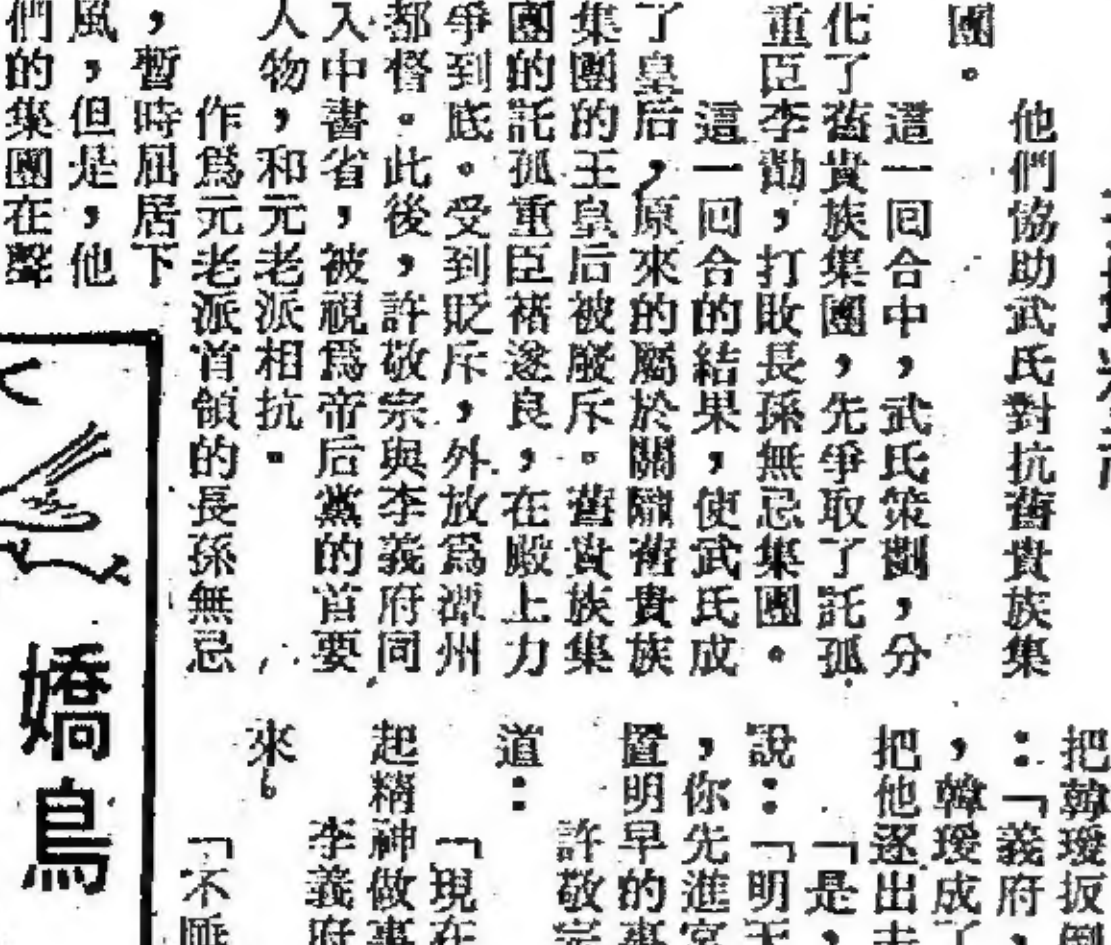 他們協助武氏對抗舊貴族集
團。
這一回合中，武氏策劃，分
化了舊貴族集團，先爭取了託孤
重臣李勣，打敗長孫無忌集團。
這一回合的結果，使武氏成
了皇后，原來的屬於關隴舊貴族
集團的王皇后被廢斥。舊貴族集
團的託孤重臣褚遂良，在殿上力
爭到底。受到貶斥，外放爲潭州
都督。此後，許敬宗與李義府同
入中書省，被視爲帝后黨的首要
人物，和元老派相抗。
作爲元老派首領的長孫無忌
，暫時屈居下
風，但是，他
們的集團在聲
把韓瑗扳倒
：「義府，
，韓瑗成了
把他逐出去
「是，
說：「明天
，你先進宮
置明早的事
許敬宗
道：
「現在
起精神做事
李義府
來。
「不睡
嬌鳥